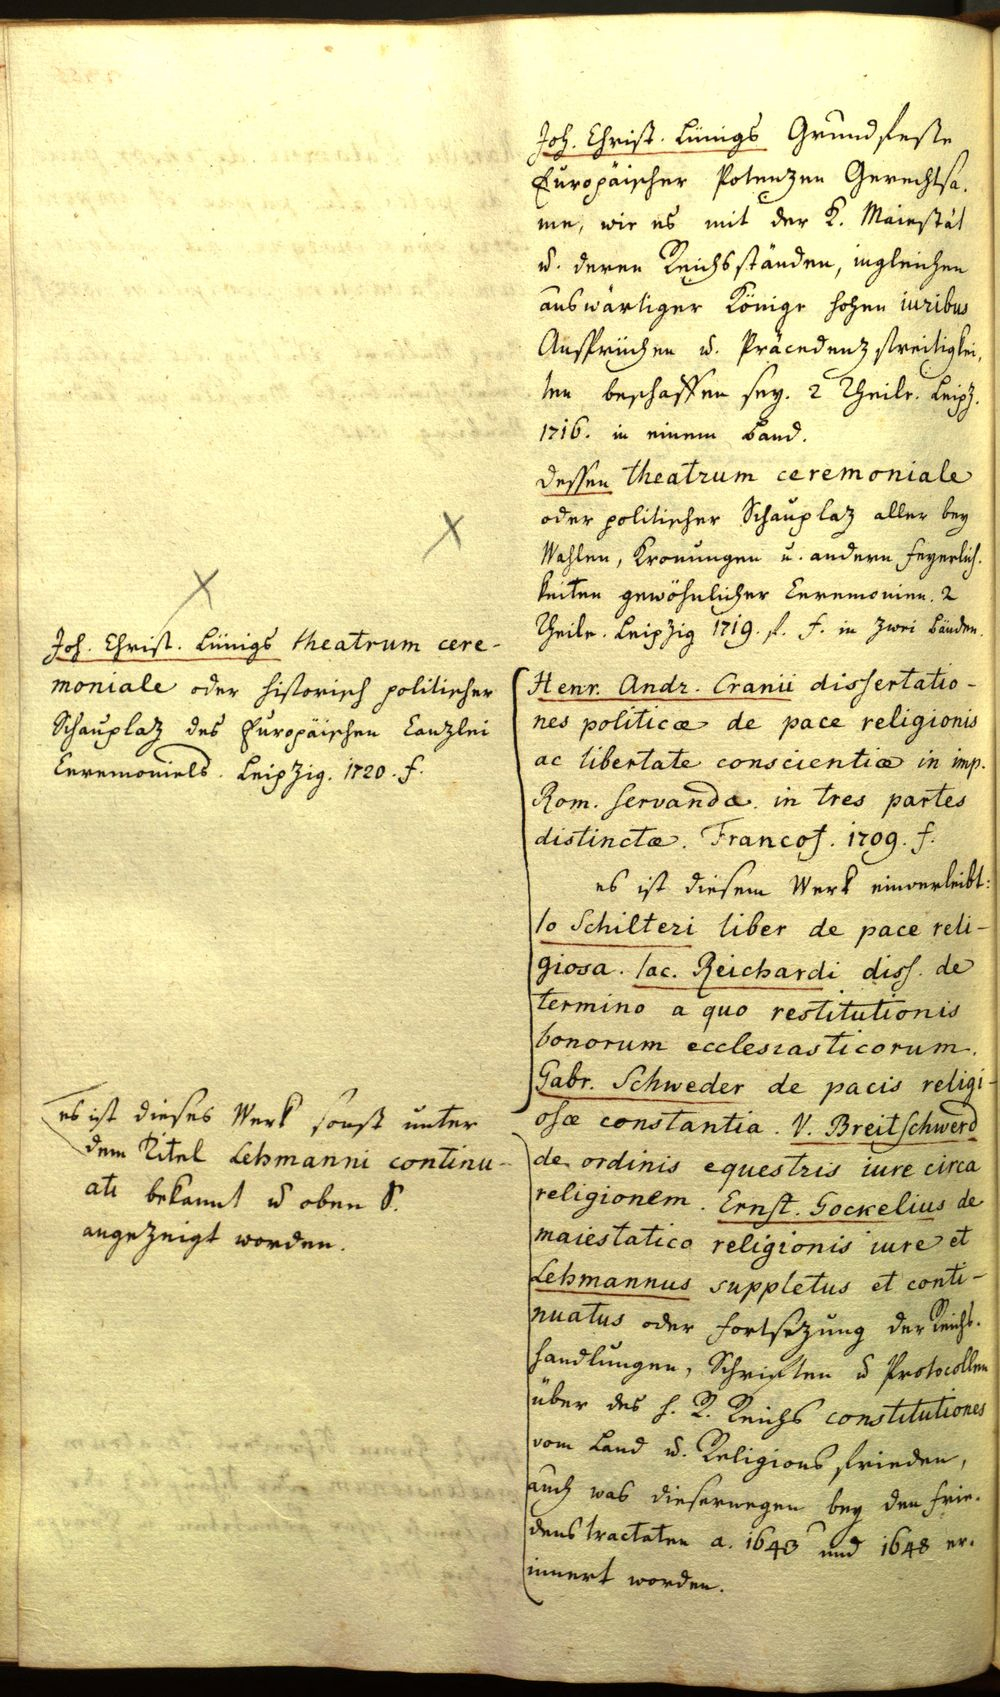 Joh. Christ. Lünigs Grundfeste
Europäischer Potenzen Gerechtsa-
me, wie es mit der K. Maiestät
u. deren Reichsständen, ingleichen
auswärtiger Könige hohen iuribus
Ansprüchen u. Präcedenz streitigkei-
ten beschaffen sey. 2 Theile. Leipz.
1716. in einem Band.
dessen theatrum ceremoniale
oder politischer Schauplaz aller bey
Wahlen, Kronungen u. andern Feyerlich-
keiten gewöhnlicher Ceremonien. 2
Theile. Leipzig 1719. f. in zwei Bänden.
Joh. Christ. Lünigs theatrum cere-
moniale oder historisch politischer
Schauplaz des Europäischen Canzlei
Ceremoniels. Leipzig. 1720. f.
Henr. Andr. Cranii dissertatio-
nes politicæ de pace religionis
ac libertate conscientiæ in imp.
Rom. servandæ in tres partes
distinctæ. Francof. 1709. f.
es ist diesem Werk einverleibt:
Io Schilteri liber de pace reli-
giosa. Iac. Reichardi diss. de
termino a quo restitutionis
bonorum ecclesiasticorum.
Gabr. Schweder de pacis religi-
osæ constantia. V. Breitschwerd
de ordinis equestris iure circa
religionem. Ernst. Gockelius de
maiestatico religionis iure et
Lehmannus suppletus et conti-
nuatus oder Fortsezung der Reichs-
handlungen, Schriften u Protocollen
über des h. R. Reichs constitutiones
vom Land u. Religions frieden,
auch was dieserwegen bey den Frie-
denstractaten a. 1643 und 1648 er-
innert worden.
es ist dieses Werk sonst unter
dem Titel Lehmanni continu-
ati bekannt u oben S.
angezeigt worden.